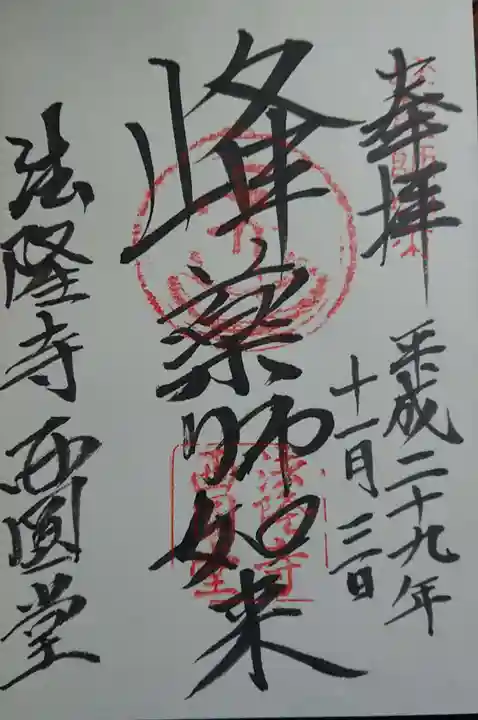 奉拝
平成二十九年
十一月三日
峰薬師如来
法隆寺西円堂
法隆寺 西圓堂